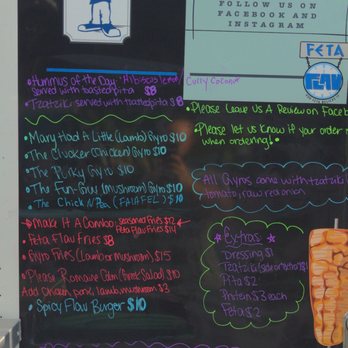 FOLLOW US ON
FACEBOOK AND
INSTAGRAM
FETA
Hummus of the Day: Hibiscus
served with toasted pita $8
Curry Coconut
Tzatziki served with toasted pita $8
Please Leave Us A Review on Faceb
Please let us know if your order
when ordering!
Mary Had A Little (Lamb) Gyro $10
The Clucker (Chicken) Gyro $10
The Pinky Gyro $10
The Fun-Guy (Mushroom) Gyro $10
The Chick N Pea (FALAFEL) $10
All Gyros come with tzatziki
tomato, raw red onion
Make It A Combo: Seasoned Fries $12
Feta Flav Fries $14
Feta Flav Fries $8
Gyro Fries (Lamb or Mushroom) $15
Please Romaine Calm (Greek Salad) $10
Add Chicken, pork, lamb, mushroom $3
Spicy Flav Burger $10
Extras
Dressing $1
Tzatziki $1
Pita $2
Protein $3 each
Feta $2